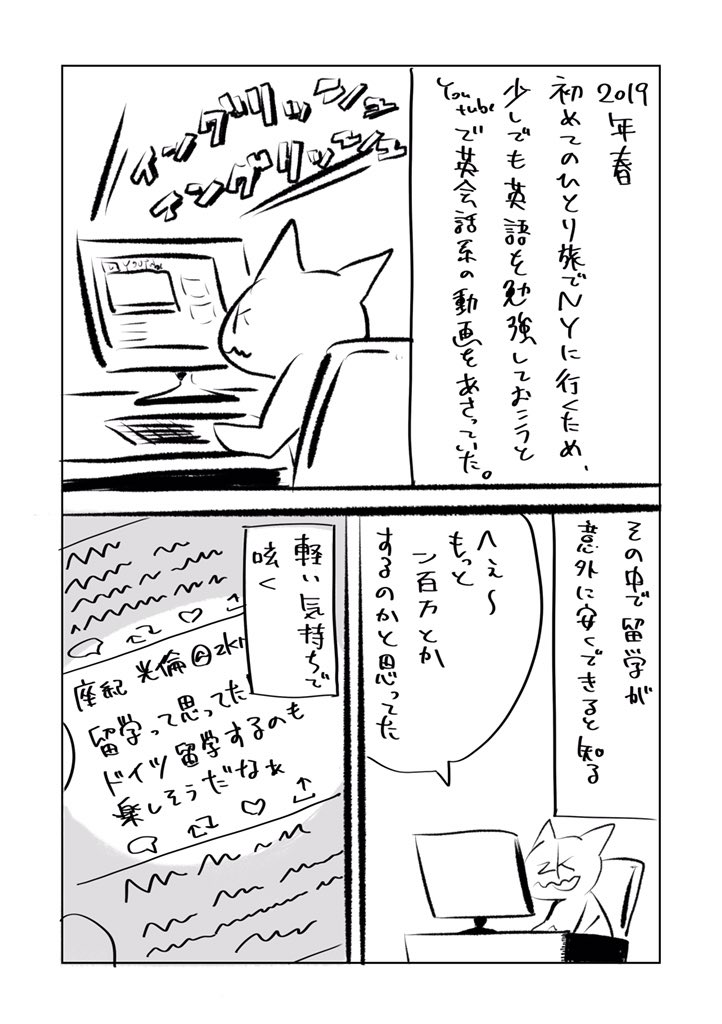 2019年春
初めてのひとり旅でNYに行くため、
少しでも英語を勉強しておこうと
YouTubeで英会話系の動画をあさっていた。
イングリッシュ
イングリッシュ
YOUTUBE
その中で留学が
意外に安くできると知る
へぇ〜
もっと
ン百万とか
するのかと思ってた
軽い気持ちで
呟く
座紀 光倫@zkr
留学って思ってた
ドイツ留学するのも
楽しそうだなぁ